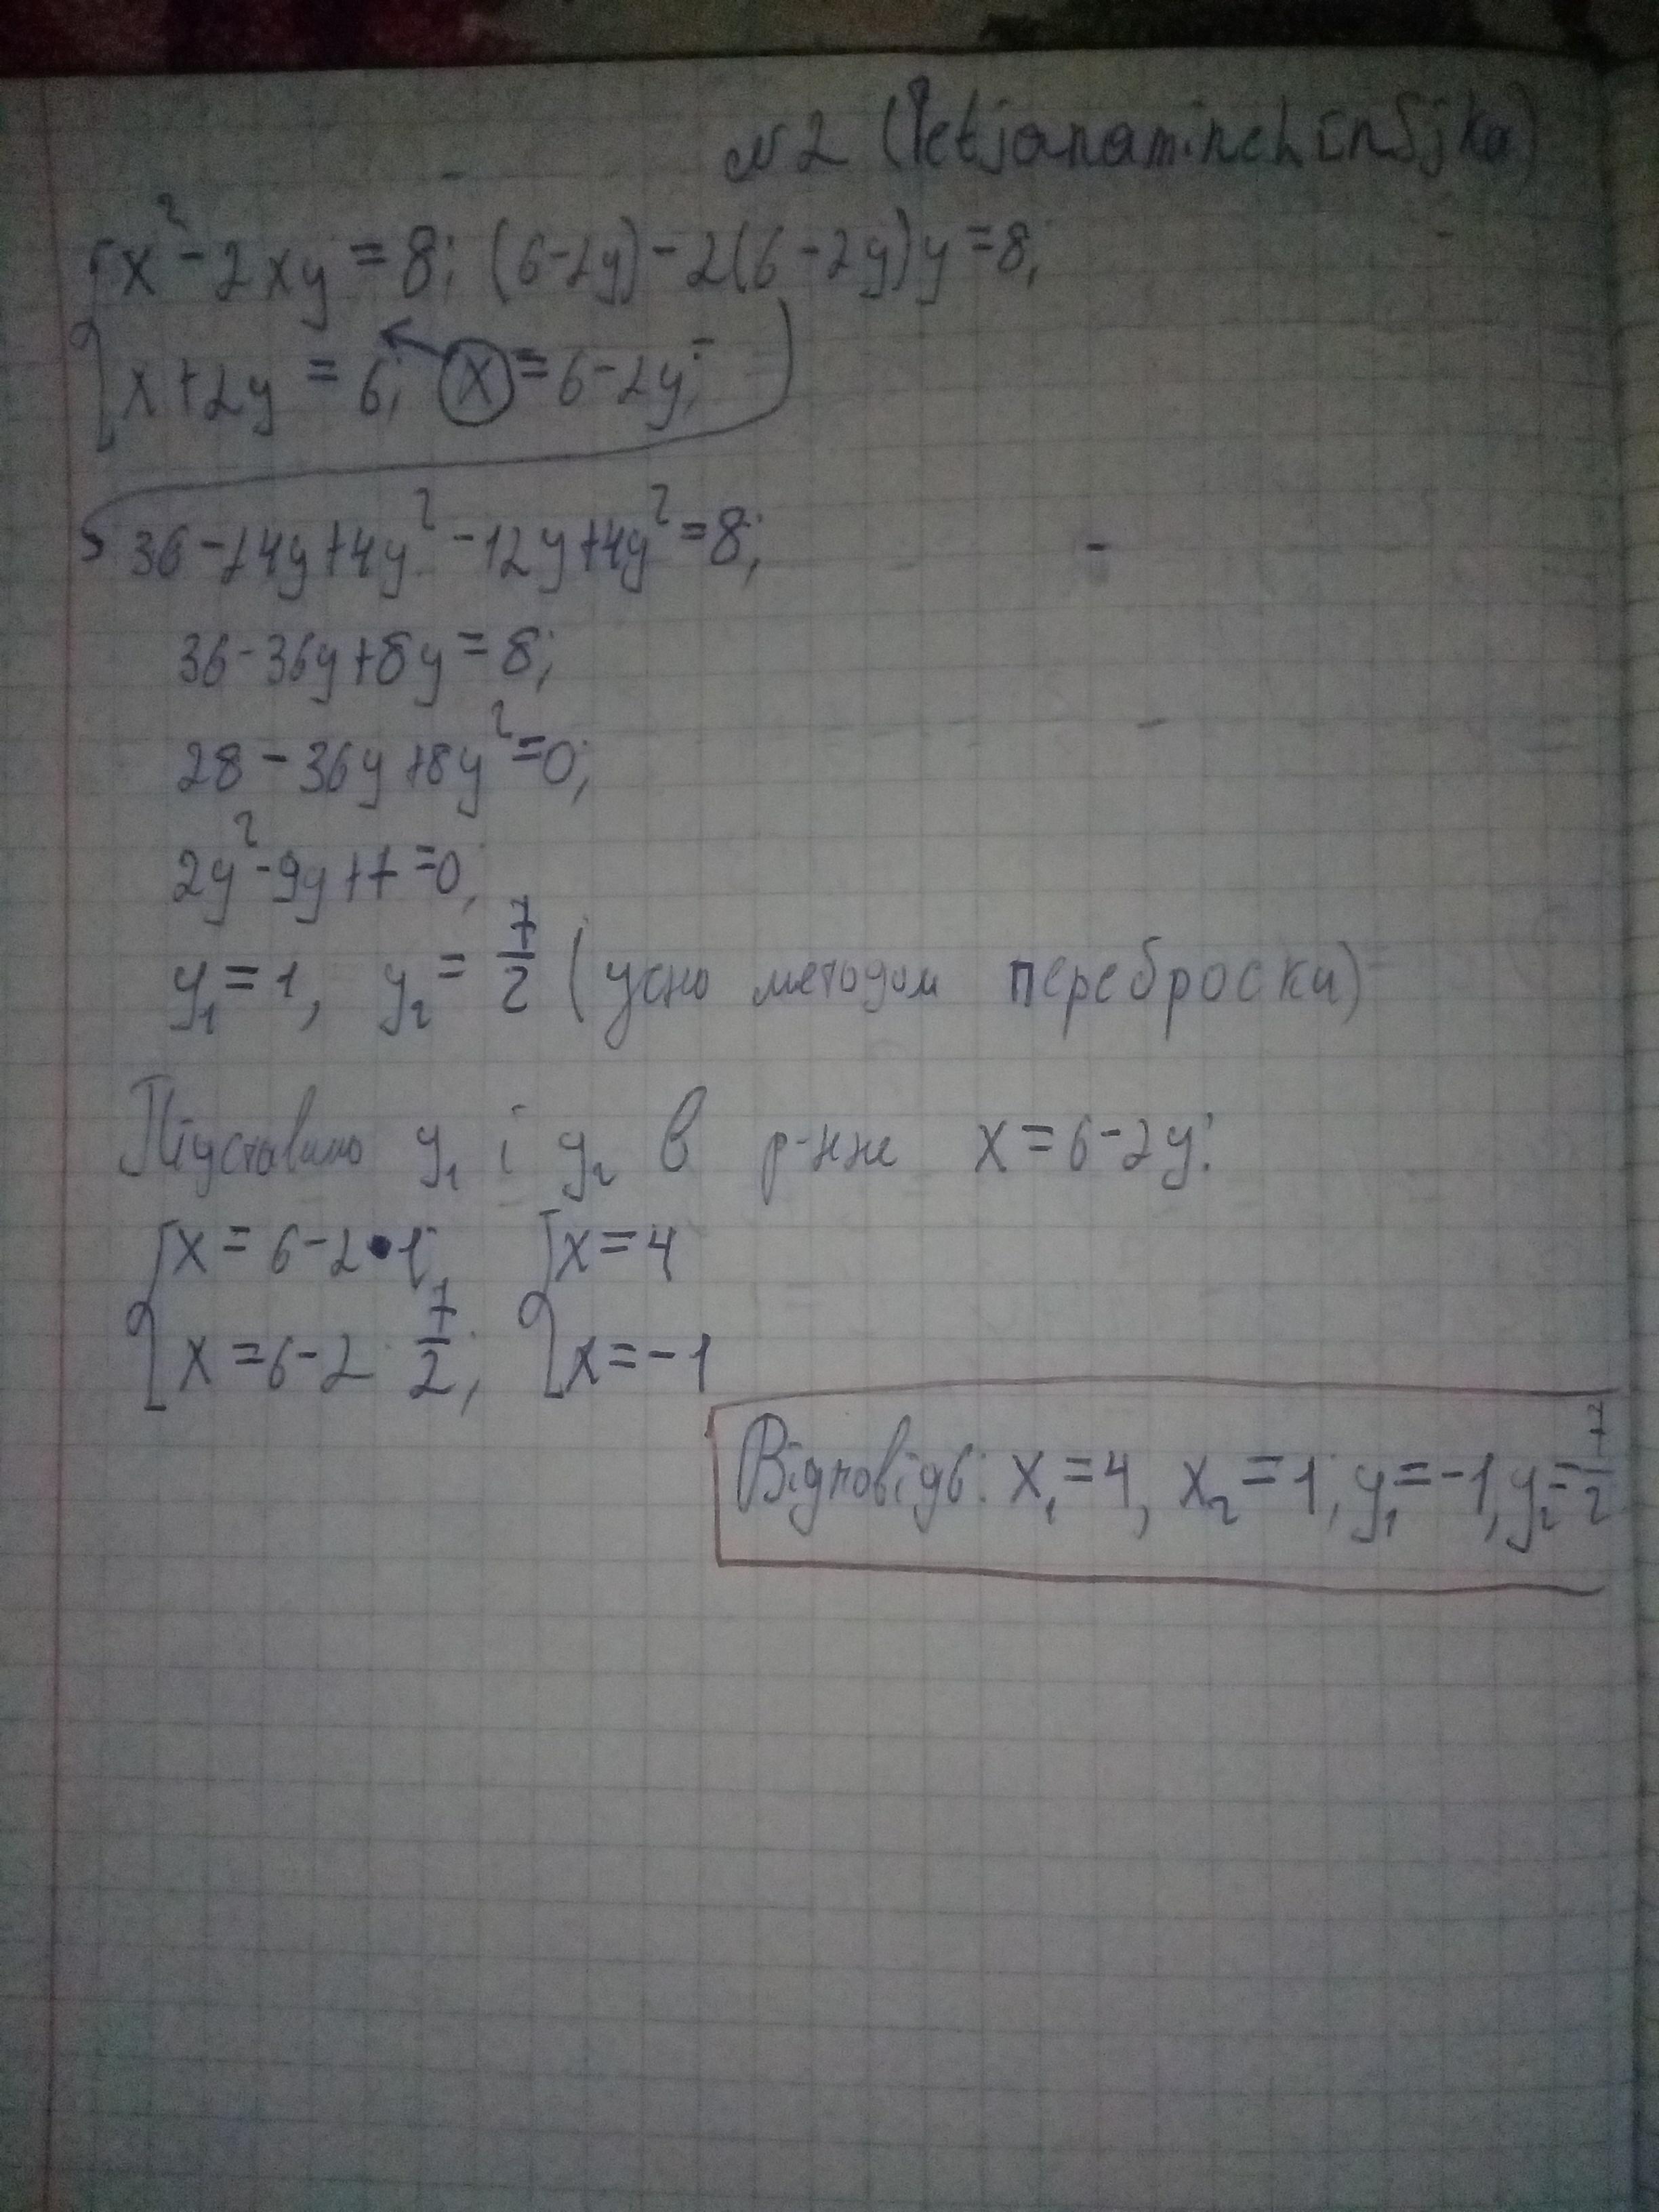 №2 (Tetjanaminchinsjka)
x² - 2xy = 8; (6-2y) - 2(6-2y)y = 8;
x + 2y = 6; x = 6 - 2y;
36 - 24y + 4y² - 12y + 4y² = 8;
36 - 36y + 8y = 8;
28 - 36y + 8y² = 0;
2y² - 9y + 7 = 0;
y₁ = 1, y₂ = 7/2 (усно методом переброски)
Підставимо y₁ і y₂ в р-нне x = 6 - 2y:
x = 6 - 2 • 1; x = 4
x = 6 - 2 7/2; x = -1
Відповідь: x₁ = 4, x₂ = 1; y₁ = -1, y₂ = 7/2